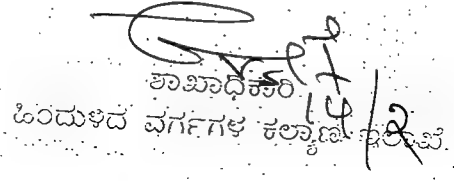 ಶಾಖಾಧಿಕಾರಿ
ಹಿಂದುಳಿದ ವರ್ಗಗಳ ಕಲ್ಯಾಣ ಇಲಾಖೆ.